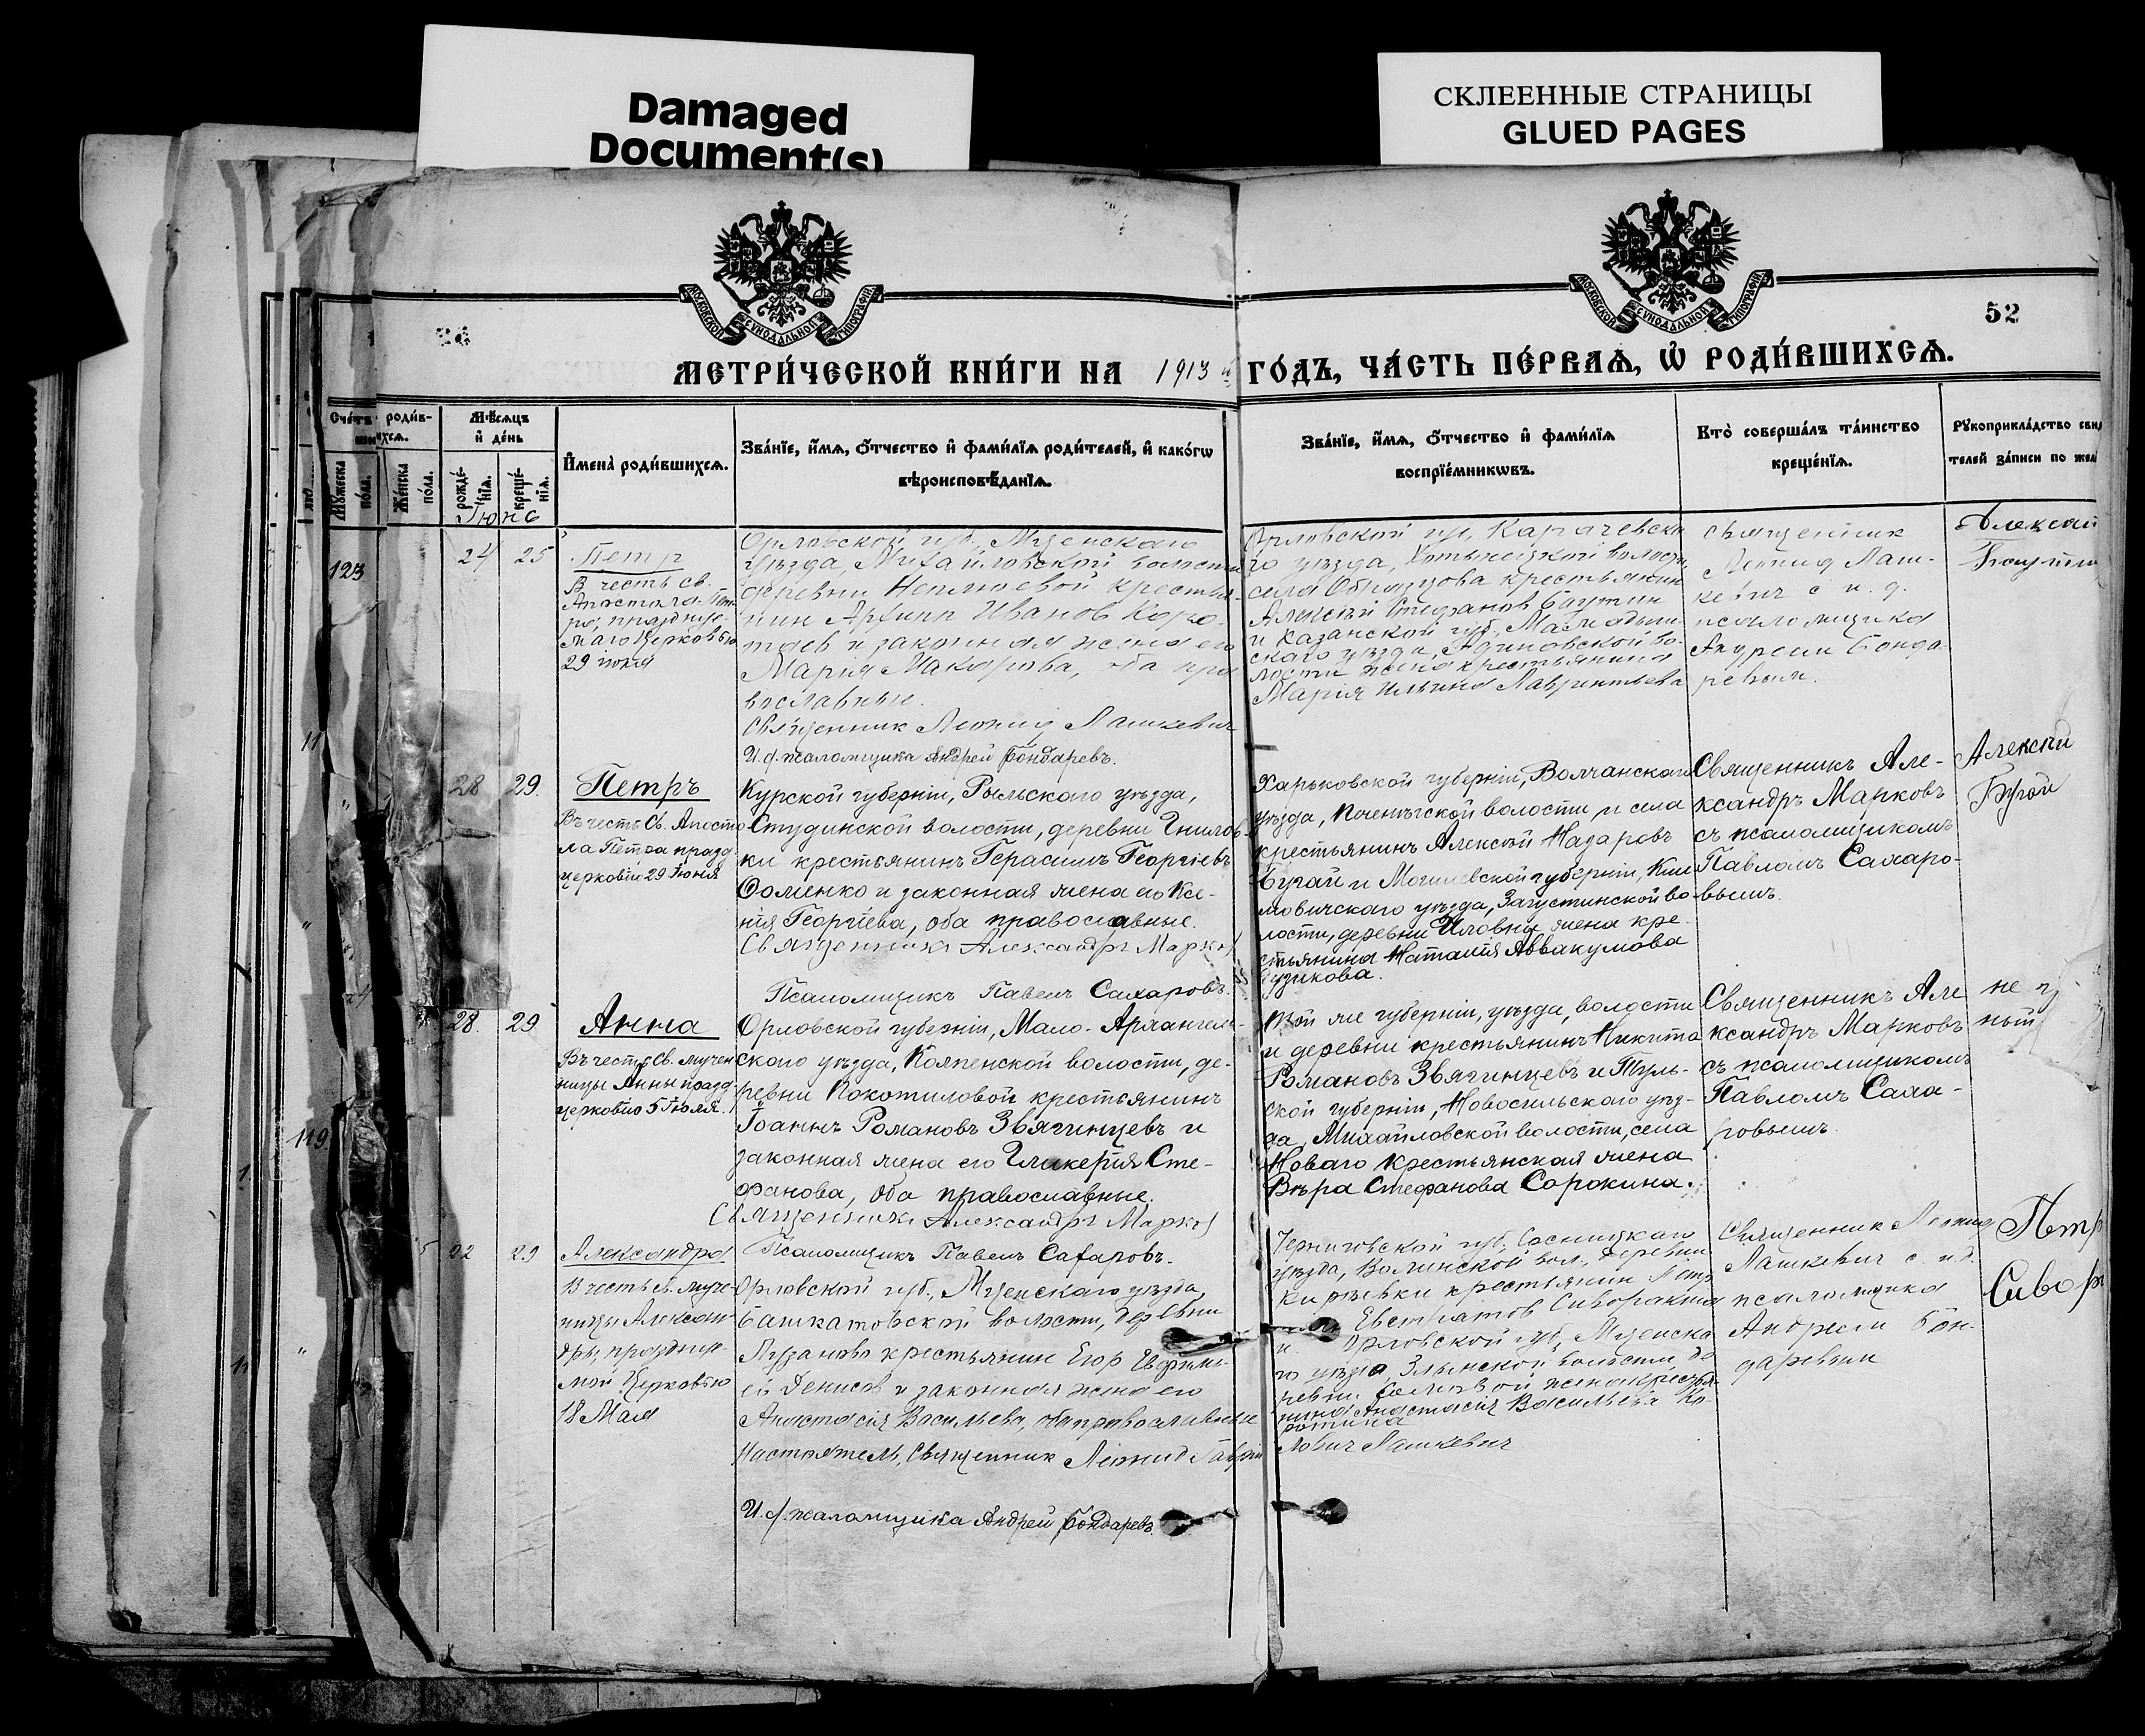 Damaged
Document(s)
СКЛЕЕННЫЕ СТРАНИЦЫ
GLUED PAGES
МОСКОВСКОЙ СѴНОДАЛЬНОЙ ТИПОГРАФІИ
МОСКОВСКОЙ СѴНОДАЛЬНОЙ ТИПОГРАФІИ
52
МЕТРИ́ЧЕСКОЙ КНИ́ГИ НА 1913 й ГО́ДЪ, ЧА́СТЬ ПЕ́РВАѦ, Ѽ РОДИ́ВШИХСѦ.
Сче́тъ роди́в-
шихсѧ.
Мꙋжеска по́ла.
Же́нска по́ла.
Мѣ́сѧцъ
и҆ де́нь
рожде́-
нїѧ.
креще́-
нїѧ.
И҆мена̀ роди́вшихсѧ.
Зва́нїе, и҆́мѧ, ѻ҆́тчество и҆ фами́лїѧ роди́телей, и҆ како́гѡ
вѣроисповѣ́данїѧ.
Зва́нїе, и҆́мѧ, ѻ҆́тчество и҆ фами́лїѧ
воспрїе́мникѡвъ.
Кто̀ соверша́лъ та́инство
креще́нїѧ.
Рꙋкоприкла́дство
телей за́писи по
Іюнь
123
24 25
Петр
В честь св.
Апостола Пет-
ра, празднуе-
маго Церковью
29 июня
Орловской губ., Мценскаго
уѣзда, Михайловской волости
деревни Неплюевой крестья-
нин Архипп Иванов Коро-
таев и законная жена его
Мария Макарова, оба пра
вославные.
Священник Леонид Лашкевич
И.д. псаломщика Андрей Бондаревъ.
Орловской губ, Карачевска
го уѣзда, Хотынецкой волости,
села Образцова крестьянин
Алексѣй Стефанов Баутин
и Казанской губ.,
скаго уѣзда, во-
лости жена крестьянина
Мария Ильина Лаврентьева
священник
Леонид Лаш-
кевич с и. д.
псаломщика
Андреем Бонда-
ревым.
Алексей
28 29.
Петръ
Въ честь Св. Апосто
ла Петра празд.
церковію 29 Іюня
Курской губерніи, Рыльскаго уѣзда,
Студинской волости, деревни Гнилов-
ки крестьянинъ Герасимъ Георгіевъ
Фоменко и законная жена его Ксе-
нія Георгіева, оба православные.
Священникъ Александръ Марков
Псаломщикъ Павелъ Сахаровъ.
Харьковской губерніи, Волчанскаго
уѣзда, Печенѣгской волости и села
крестьянинъ Алексѣй Назаровъ
Бугай и Могилевской губерніи, Кли
мовичскаго уѣзда, Загустинской во-
лости, деревни Иловки жена кре-
стьянина Наталія Аввакумова
Священникъ Але-
ксандръ Марковъ
съ псаломщикомъ
Павломъ Сахаро-
вымъ.
Алексѣй
Бугай
28. 29
Анна
Въ честь Св. мучен
ницы Анны празд.
церковію 5 Іюля.
Орловской губерніи, Мало-Архангель-
скаго уѣзда, Колпенской волости, де-
ревни Покотиловой крестьянинъ
Іоаннъ Романовъ Звягинцевъ и
законная жена его Гликерія Сте-
фанова, оба православные.
Священникъ Александръ Марков
Псаломщикъ Павелъ Сахаровъ.
Той же губерніи, уѣзда, волости
и деревни крестьянинъ Никита
Романовъ Звягинцевъ и Туль-
ской губерніи, Новосильскаго уѣз-
да, Михайловской волости, села
Новаго крестьянская жена
Вѣра Стефанова Сорокина.
Священникъ Але
ксандръ Марковъ
съ псаломщикомъ
Павломъ Саха-
ровымъ.
не г
ный
119
22 29
Александра
В честь св. муче-
ницы Алексан-
дры, празднуе-
мой Церковью
18 Мая
Орловской губ., Мценскаго уѣзда,
Башкатовской волости, деревни
крестьянин Егор Ефимь-
ев Денисов и законная жена его
Анастасия Васильева, оба православные
Настоятель, Священник Леонид Гаврии
лович Лашкевич
И. д. псаломщика Андрей Бондаревъ.
Черниговской губ., Сосницкаго
уѣзда, Волынской вол., деревни
Киреевки крестьянин Петр
Евстратов Сиворакша
и Орловской губ., Мценска
го уѣзда, волости, де
ревни жена крестья-
нина Анастасия Васильева
Священник Леонид
Лашкевич с и.д.
псаломщика
Андреем Бон-
даревым
Петр
Сивор